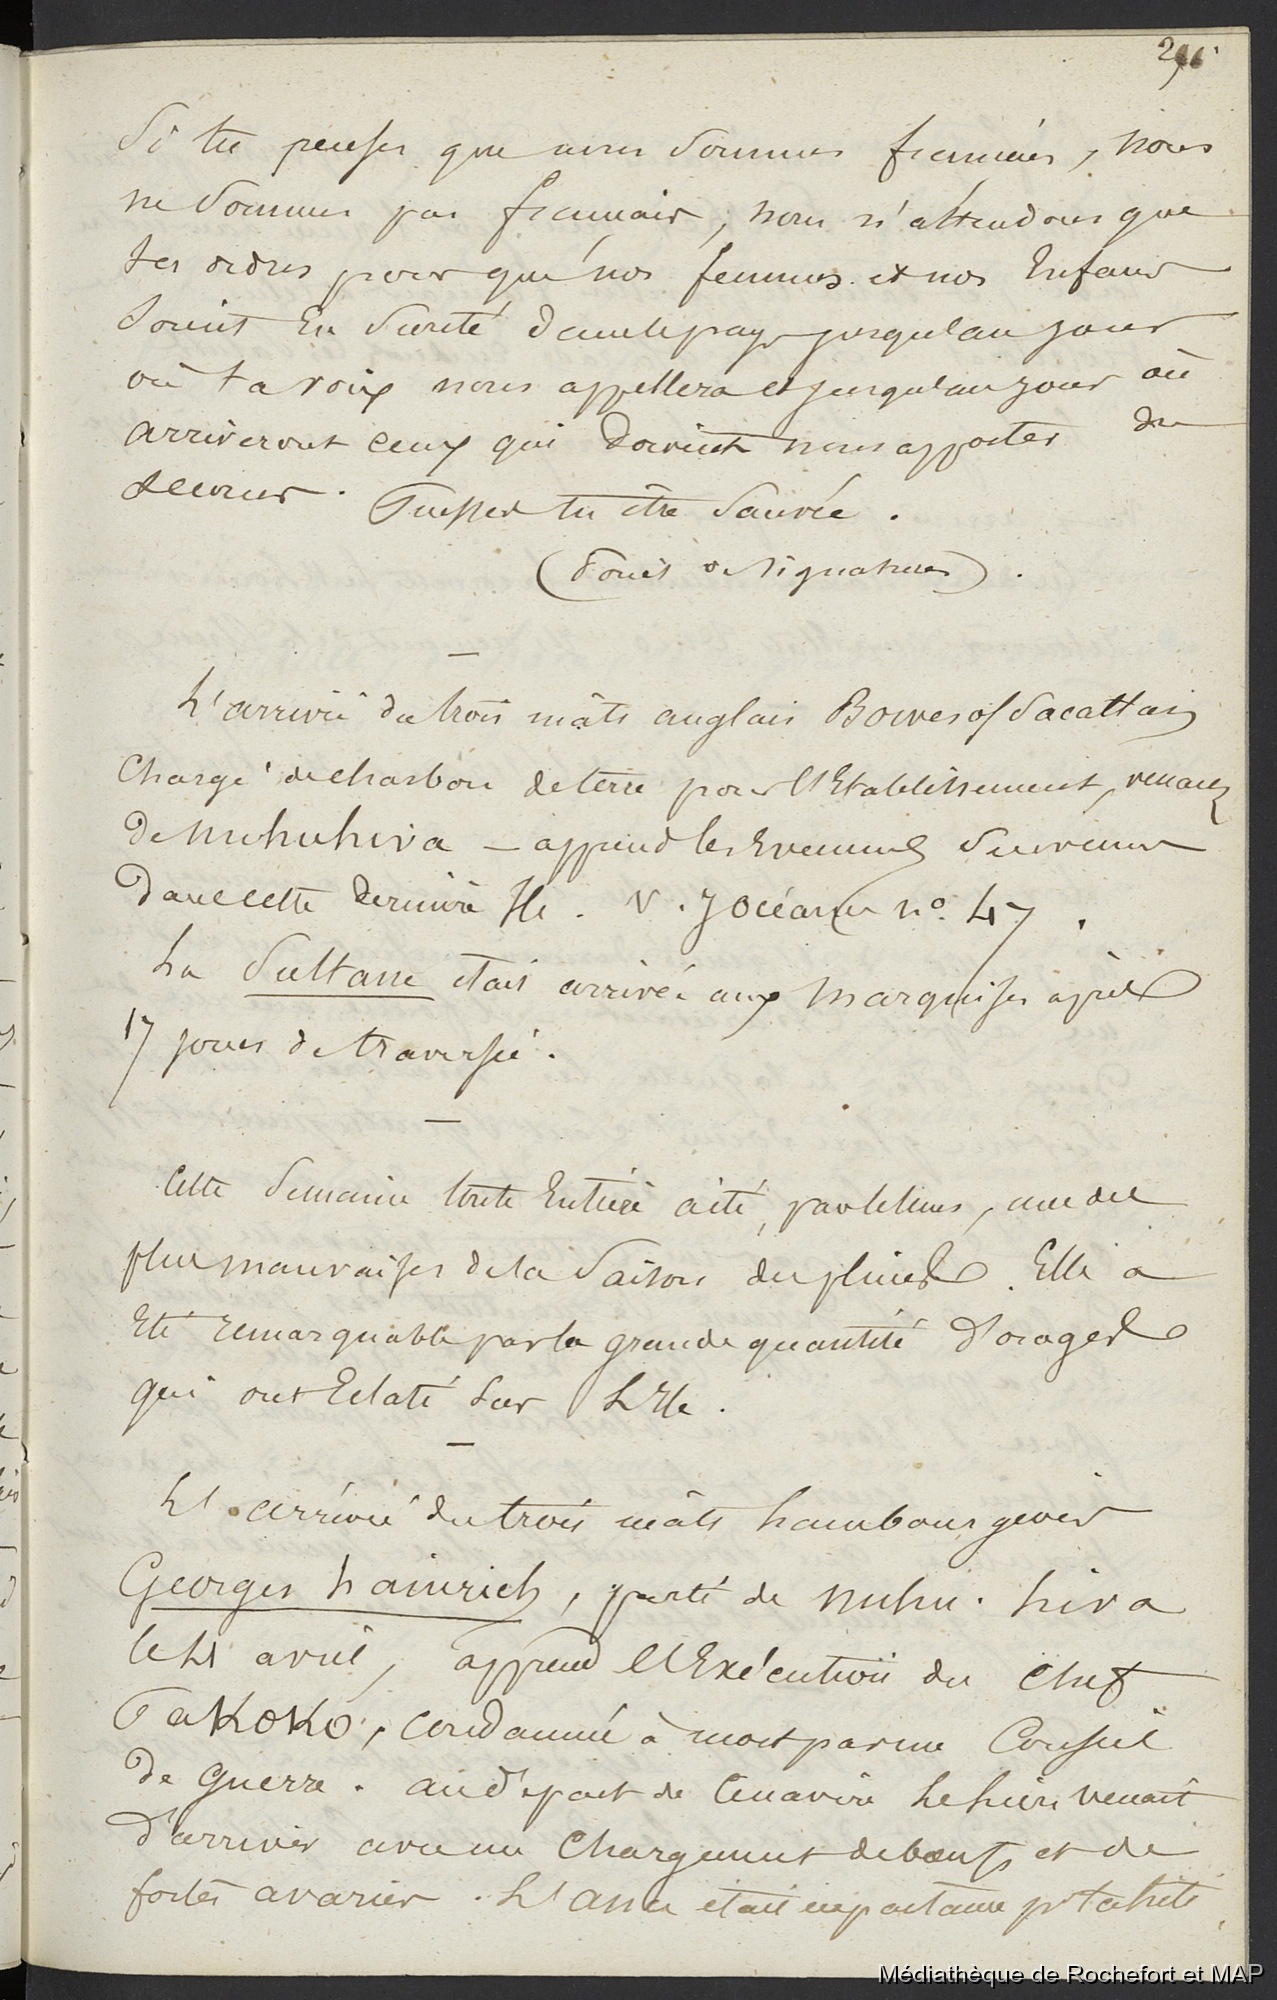 Si tu penses que nous sommes français, nous
ne sommes pas français, nous n'attendons que
tes ordres pour que nos femmes et nos Enfans
soient En sureté dans le pays jusqu'au jour
où ta voix nous appellera et jusqu'au jour où
arriveront ceux qui doivent nous apporter du
secours. Puisses tu être sauvée.
(Suivent les signatures).
L'arrivée du trois mâts anglais Bowes of
Chargé de charbon de terre pour l'Etablissement, venant
de Nuhuhiva – apprend les Evenemens survenus
dans cette dernière Ile. V. l'Océanie no. 47.
La Sultane était arrivée aux Marquises après
17 jours de traversée.
Cette semaine toute Entière a été, par le tems, une des
plus mauvaises de la saison des pluies. Elle a
Eté remarquable par la grande quantité d'orages
qui ont Eclaté sur L'Ile.
L'arrivée du trois mâts hambourgeois
Georges hainrich, parti de nuhu-hiva
le 21 avril, apprend l'Exécution du Chef
PaKoKo, condamné à mort par un Conseil
de guerre. au départ de ce navire le venait
d'arriver avec un Chargement de bœufs et de
fortes avaries. L'anna était en partance pr tahiti
Médiathèque de Rochefort et MAP